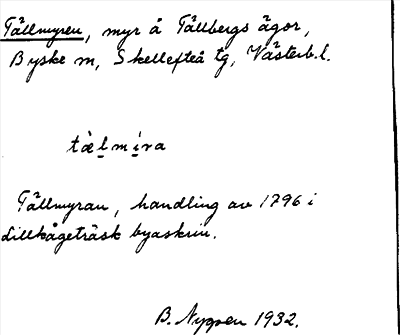 Tällmyren, myr å Tällbergs ägor,
Byske sn, Skellefteå tg, Västerb. l.
tæ̀l̠mí̠ra
Tällmyran, handling av 1796 i
Lillkågeträsk byaskrin.
B. Nygren 1932.